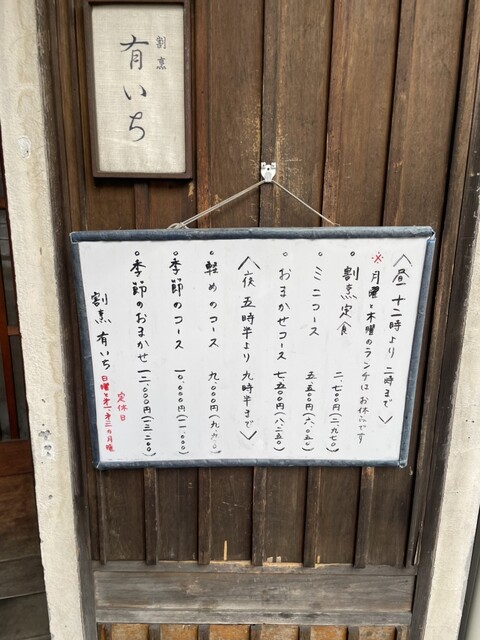 割烹
有いち
〈昼 十二時より 二時まで〉
※月曜と木曜のランチはお休みです
○割烹定食 二、七〇〇(二、九七〇)
○ミニコース 五、五〇〇円(六、〇五〇)
○おまかせコース 七、五〇〇円(八、二五〇)
〈夜 五時半より 九時半まで〉
○軽めのコース 九、〇〇〇円(九、九〇〇)
○季節のコース 一〇、〇〇〇円(一一、〇〇〇)
○季節のおまかせ 一二、〇〇〇円(一三、二〇〇)
定休日
割烹 有いち 日曜と第一、第三の月曜